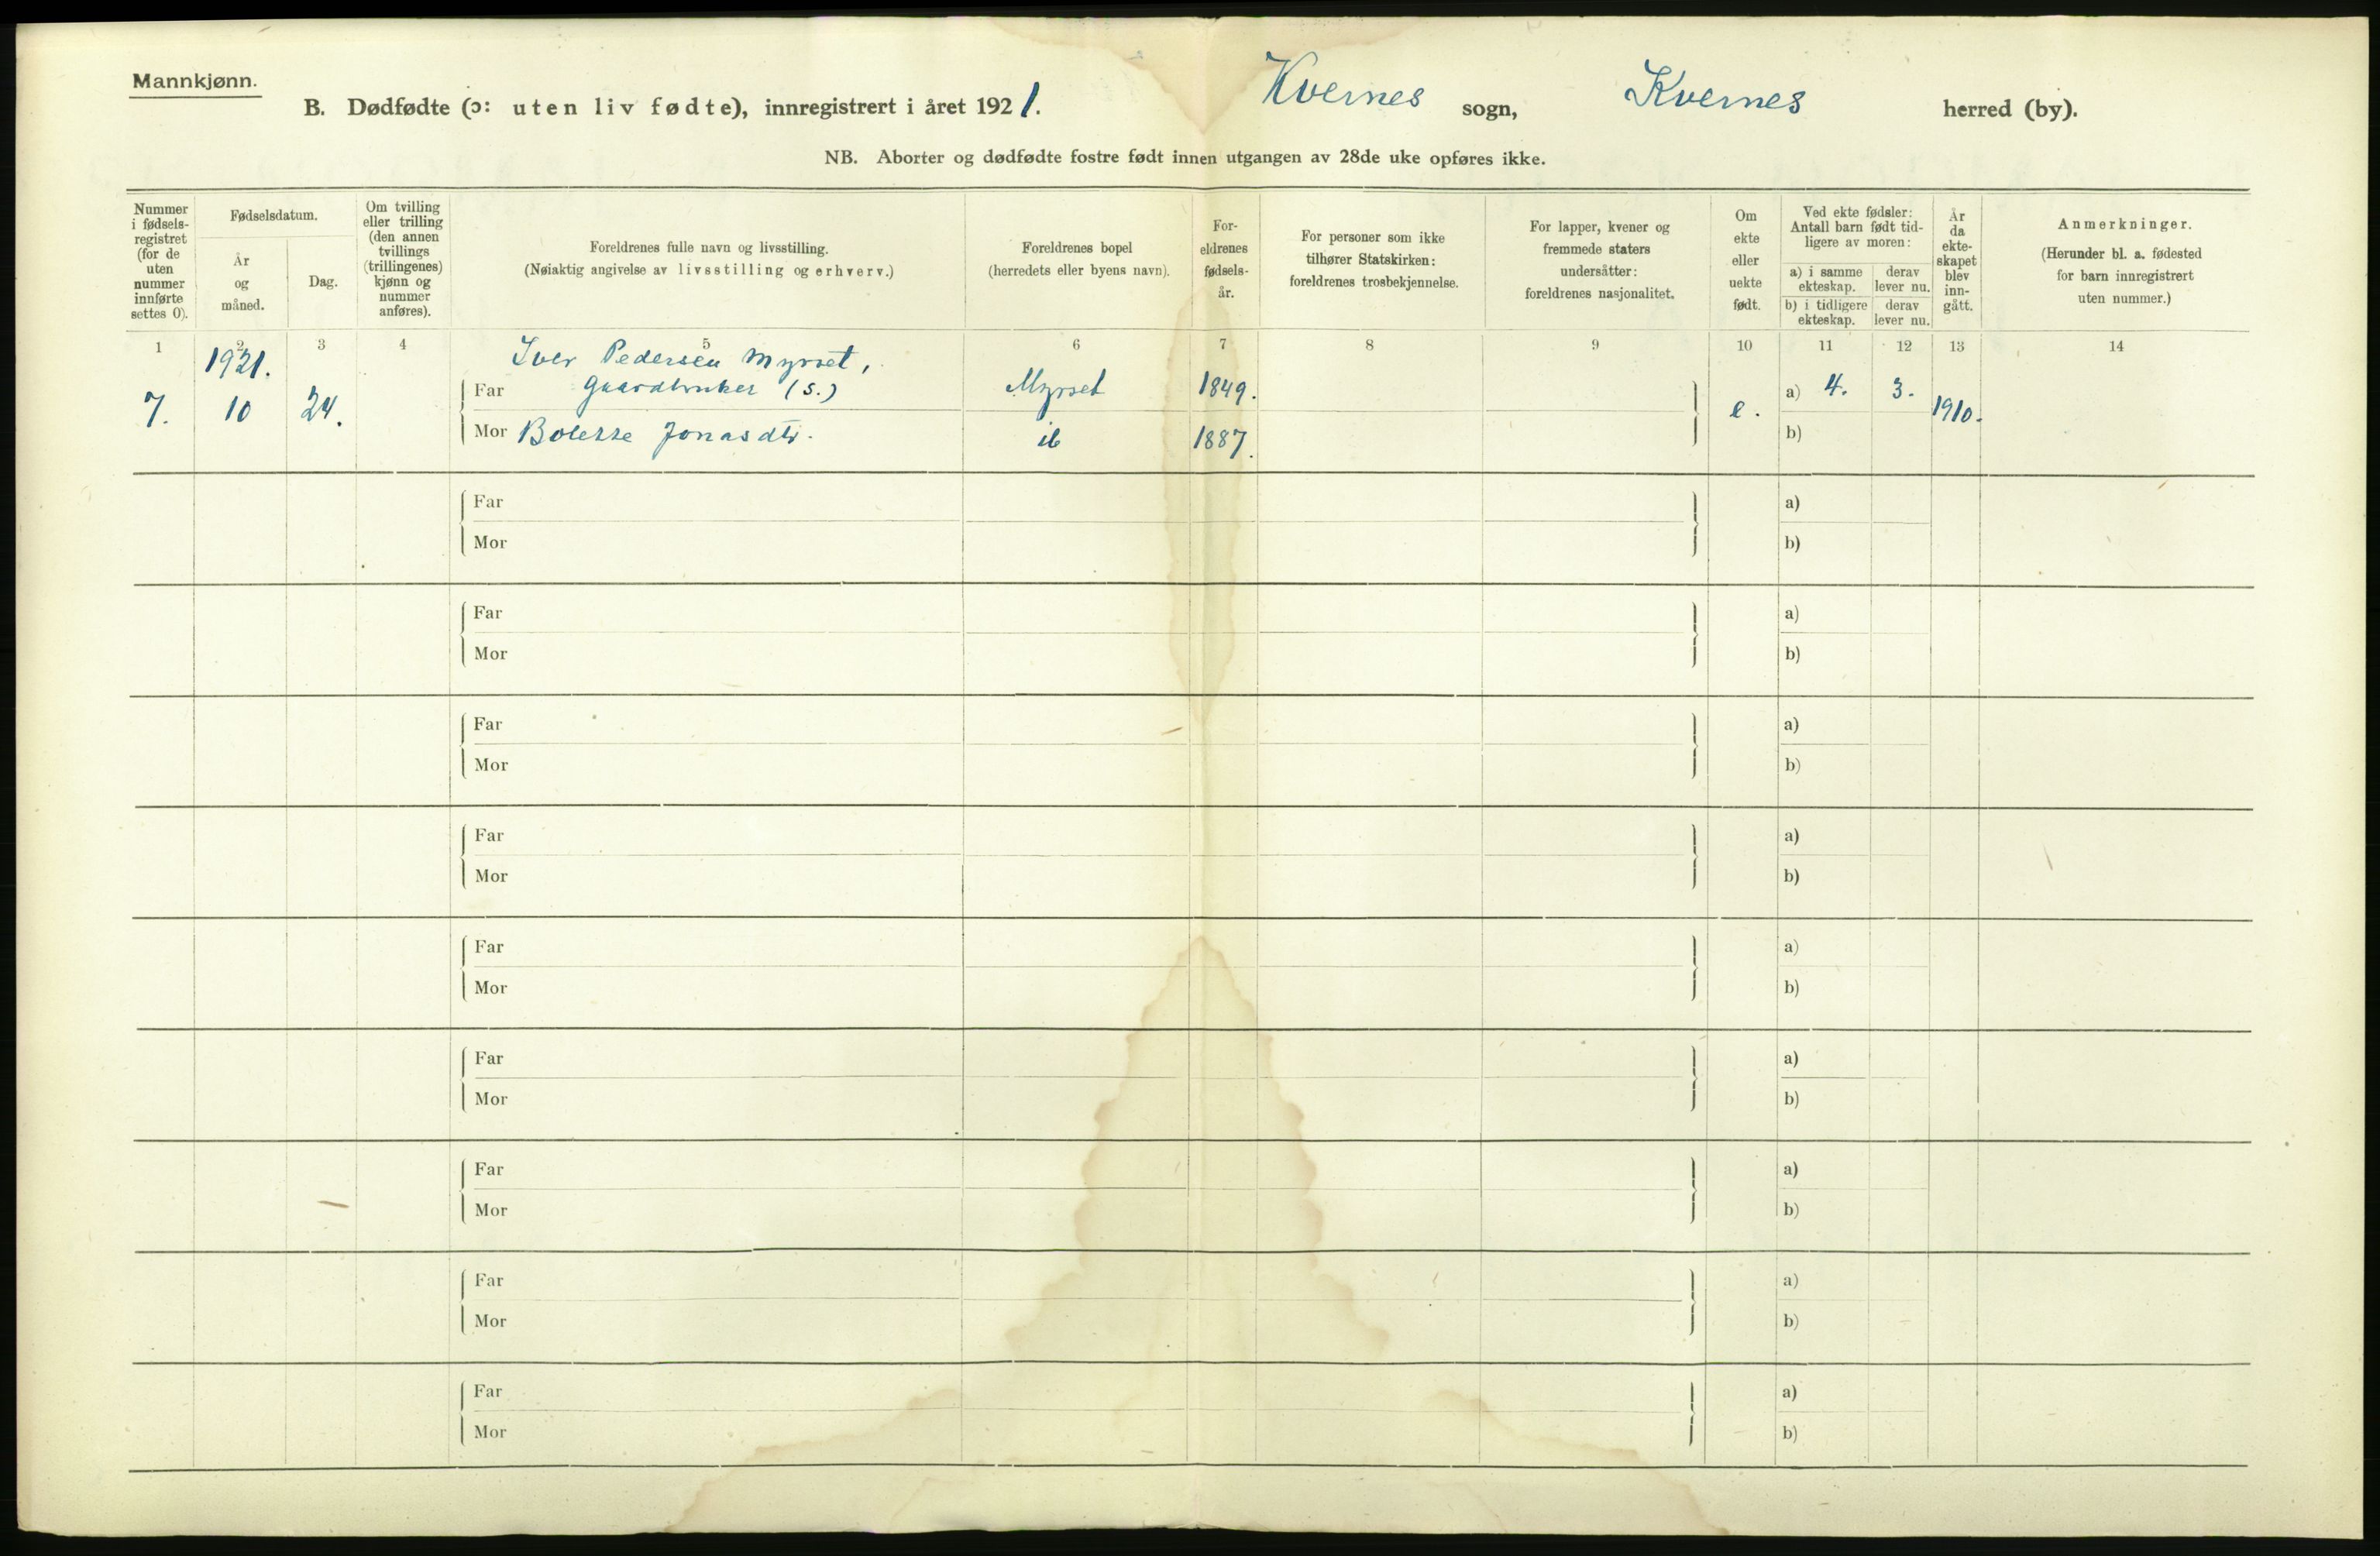 Mannkjønn.
B. Dødfødte (ɔ: uten liv fødte), innregistrert i året 1921. Kvernes sogn, Kvernes herred (by).
NB. Aborter og dødfødte fostre født innen utgangen av 28de uke opføres ikke.
Nummer i fødsels-registret (for de uten nummer innførte settes 0).
Fødselsdatum.
År og måned.
Dag.
Om tvilling eller trilling (den annen tvillings (trillingenes) kjønn og nummer anføres).
Foreldrenes fulle navn og livsstilling.
(Nøiaktig angivelse av livsstilling og erhverv.)
Foreldrenes bopel
(herredets eller byens navn).
For-eldrenes fødsels-år.
For personer som ikke tilhører Statskirken: foreldrenes trosbekjennelse.
For lapper, kvener og fremmede staters undersåtter: foreldrenes nasjonalitet.
Om ekte eller uekte født.
Ved ekte fødsler: Antall barn født tid-ligere av moren:
a) i samme ekteskap. derav lever nu.
b) i tidligere ekteskap. derav lever nu.
År da ekte-skapet blev inn-gått.
Anmerkninger.
(Herunder bl. a. fødested for barn innregistrert uten nummer.)
1 2 3 4 5 6 7 8 9 10 11 12 13 14
1921. Iver Pedersen Myrset,
7. 10 24. Far Gaardbruker (S.) Myrset 1849. e. a) 4. 3. 1910.
Mor Bolette Jonasdtr. ib 1887. b)
Far a)
Mor b)
Far a)
Mor b)
Far a)
Mor b)
Far a)
Mor b)
Far a)
Mor b)
Far a)
Mor b)
Far a)
Mor b)
Far a)
Mor b)
Far a)
Mor b)